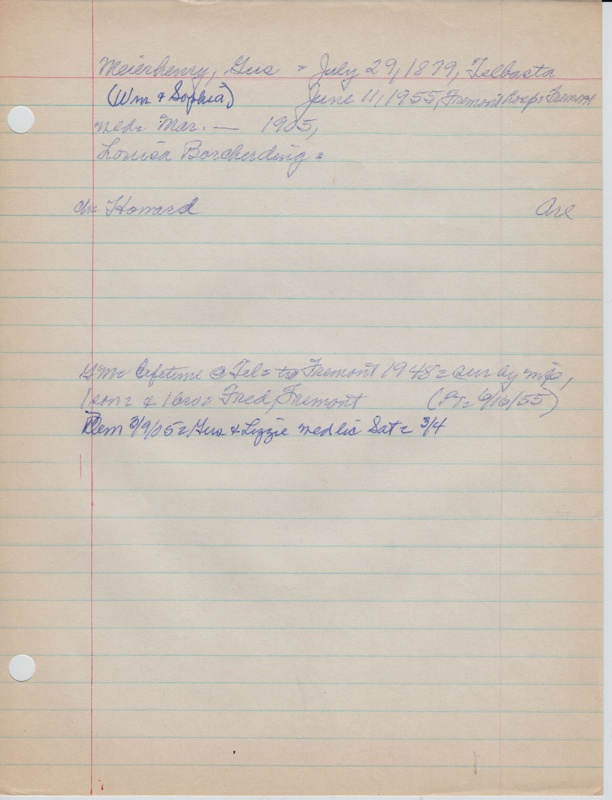 Meierhenry, Gus = July 29, 1879, Telbasta
(Wm & Sophia) June 11, 1955, Fremont Hosp= Fremont
med= Mar. — 1905,
Louisa Borcherding =
ch= Howard Arl
GM= lifetime @ Tel= to Fremont 1948= sur by mfs,
1 son= & 1 bro= Fred, Fremont (PT= 6/16/55)
Dem 3/9/05= Gus & Lizzie med lic Sat= 3/4